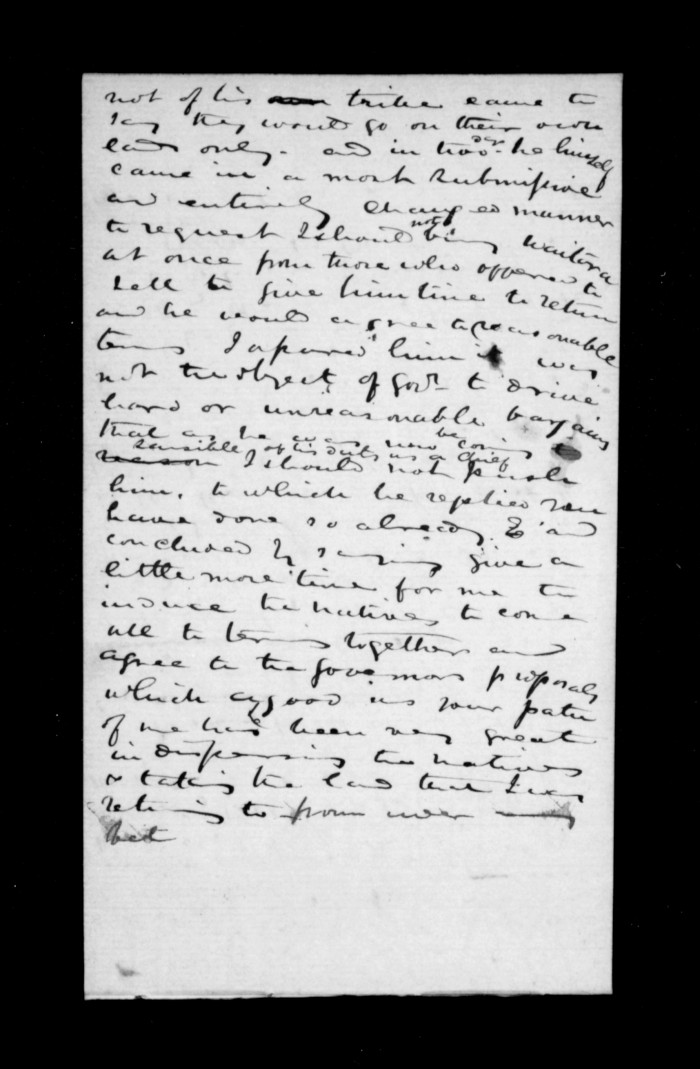 not of his own tribe came to
say they would go on their own
land only. and in two days he himself
came in a most submissive
and entirely changed manner
to request I should not buy Waitara
at once from those who offered to
sell to give him time to return
and he would agree to reasonable
terms I assured him it was
not the object of Govt to drive
hard or unreasonable bargains
that as he was now becoming
sensible of his duty as a chief
reason I should not push
him, to which he replied you
have done so already, & and
concluded by saying give a
little more time for me to
induce the natives to come
all to terms together and
agree to the Governors proposals
which as good as your
of me has been very great
in dispersing the natives
& taking the land that I was
returning to from under my
bed